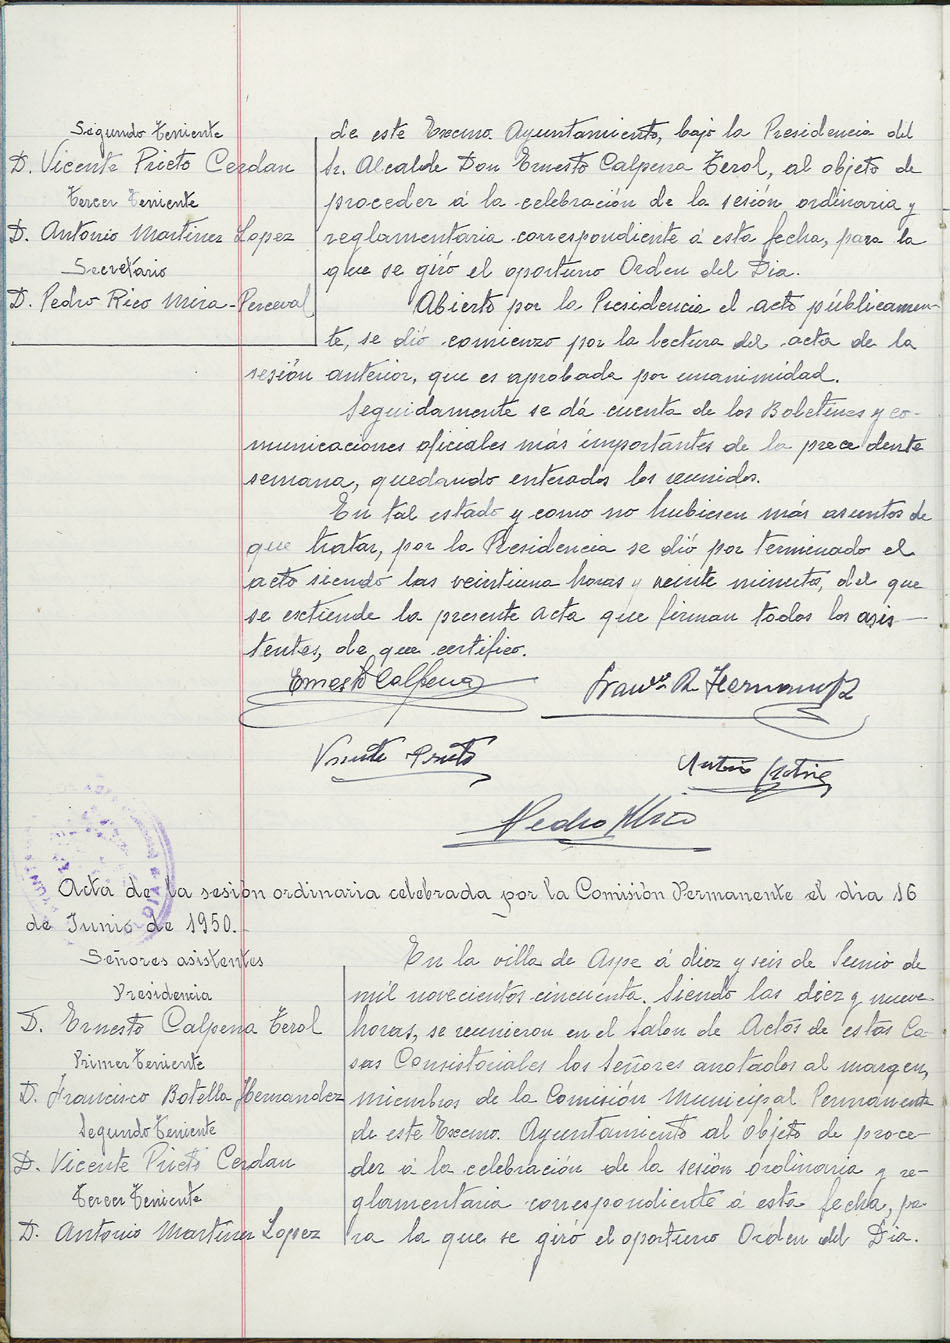 Segundo Teniente
D. Vicente Prieto Cerdan
Tercer Teniente
D. Antonio Martinez Lopez
Secretario
D. Pedro Rico Mira-Perceval
de este Excmo. Ayuntamiento, bajo la Presidencia del
Sr. Alcalde Don Ernesto Calpena Terol, al objeto de
proceder á la celebración de la sesión ordinaria y
reglamentaria correspondiente á esta fecha, para la
que se giró el oportuno Orden del Dia.
Abierto por la Presidencia el acto públicamen-
te, se dió comienzo por la lectura del acta de la
sesión anterior, que es aprobada por unanimidad.
Seguidamente se dá cuenta de los Boletines y co-
municaciones oficiales más importantes de la precedente
semana, quedando enterados los reunidos.
En tal estado y como no hubiesen más asuntos de
que tratar, por la Presidencia se dió por terminado el
acto siendo las veintiuna horas y veinte minutos, del que
se extiende la presente acta que firman todos los asis-
tentes, de que certifico.
Ernesto Calpena
Franco B Hernandez
Vicente Prieto
Antonio Martinez
Pedro Rico
Acta de la sesión ordinaria celebrada por la Comisión Permanente el dia 16
de Junio de 1950.
Señores asistentes
Presidencia
D. Ernesto Calpena Terol
Primer Teniente
D. Francisco Botella Hernandez
Segundo Teniente
D. Vicente Prieto Cerdan
Tercer Teniente
D. Antonio Martinez Lopez
En la villa de Aspe á diez y seis de Junio de
mil novecientos cincuenta. Siendo las diez y nueve
horas, se reunieron en el Salon de Actos de estas Ca-
sas Consistoriales los Señores anotados al margen,
miembros de la Comisión Municipal Permanente
de este Excmo. Ayuntamiento al objeto de proce-
der á la celebración de la sesión ordinaria y re-
glamentaria correspondiente á esta fecha, pa-
ra la que se giró el oportuno Orden del Dia.